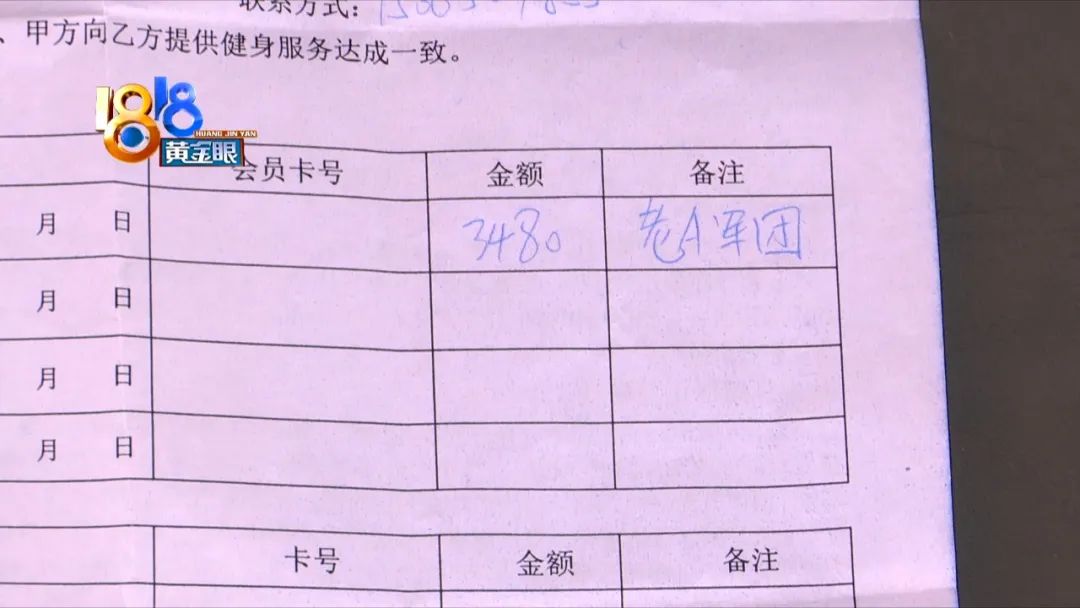 联系方式：
、甲方向乙方提供健身服务达成一致。
1818
HUANG JIN YAN
黄金眼
会员卡号 金额 备注
月 日 3480 老A军团
月 日
月 日
月 日
卡号 金额 备注